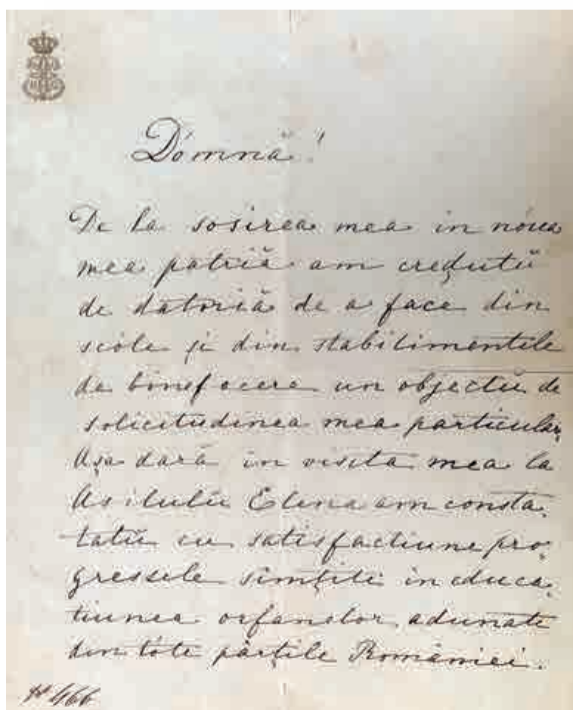 Dómnă!
De la sosirea mea in nóua
mea patriă am creḑutŭ
de datoriă de a face din
scóle și din stabilimentele
de binefacere un objectŭ de
solicitudinea mea particulară
Așa dară in visita mea la
Asilulŭ Elena am consta-
tatŭ cu satisfacțiune pro-
gressele simțite in educa-
țiunea orfanelor adunate
din tóte părțile Romăniei.
No 466